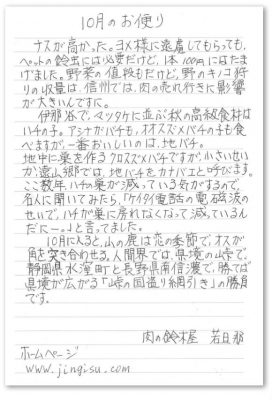 10月のお便り
ナスが高かった。ヨメ様に遠慮してもらっても、
ペットの鈴虫には必要だけど、1本100円にはたま
げました。野菜の値段もだけど、野のキノコ狩
りの収量は、信州では、肉の売れ行きに影響
が大きいんですに。
伊那谷で、マツタケに並ぶ秋の高級食材は
ハチの子。アシナガバチも、オオスズメバチの子も食
べますが、一番おいしいのは、地バチ。
地中に巣を作るクロスズメバチですが、小さいせい
か遠山郷では、地バチをカナバエと呼びます。
ここ数年ハチの巣が減っている気がするので、
名人に聞いてみたら、「ケイタイ電話の電磁波の
せいで、ハチが巣に戻れなくなって減っているん
だに〜。」と言ってました。
10月に入ると、山の鹿は恋の季節で、オスが
角を突き合わせる。人間界では、県境の峠で、
静岡県水窪町と長野県南信濃で、勝てば
県境が広がる「峠の国盗り綱引き」の勝負
です。
肉の鈴木屋 若旦那
ホームページ
www.jingisu.com